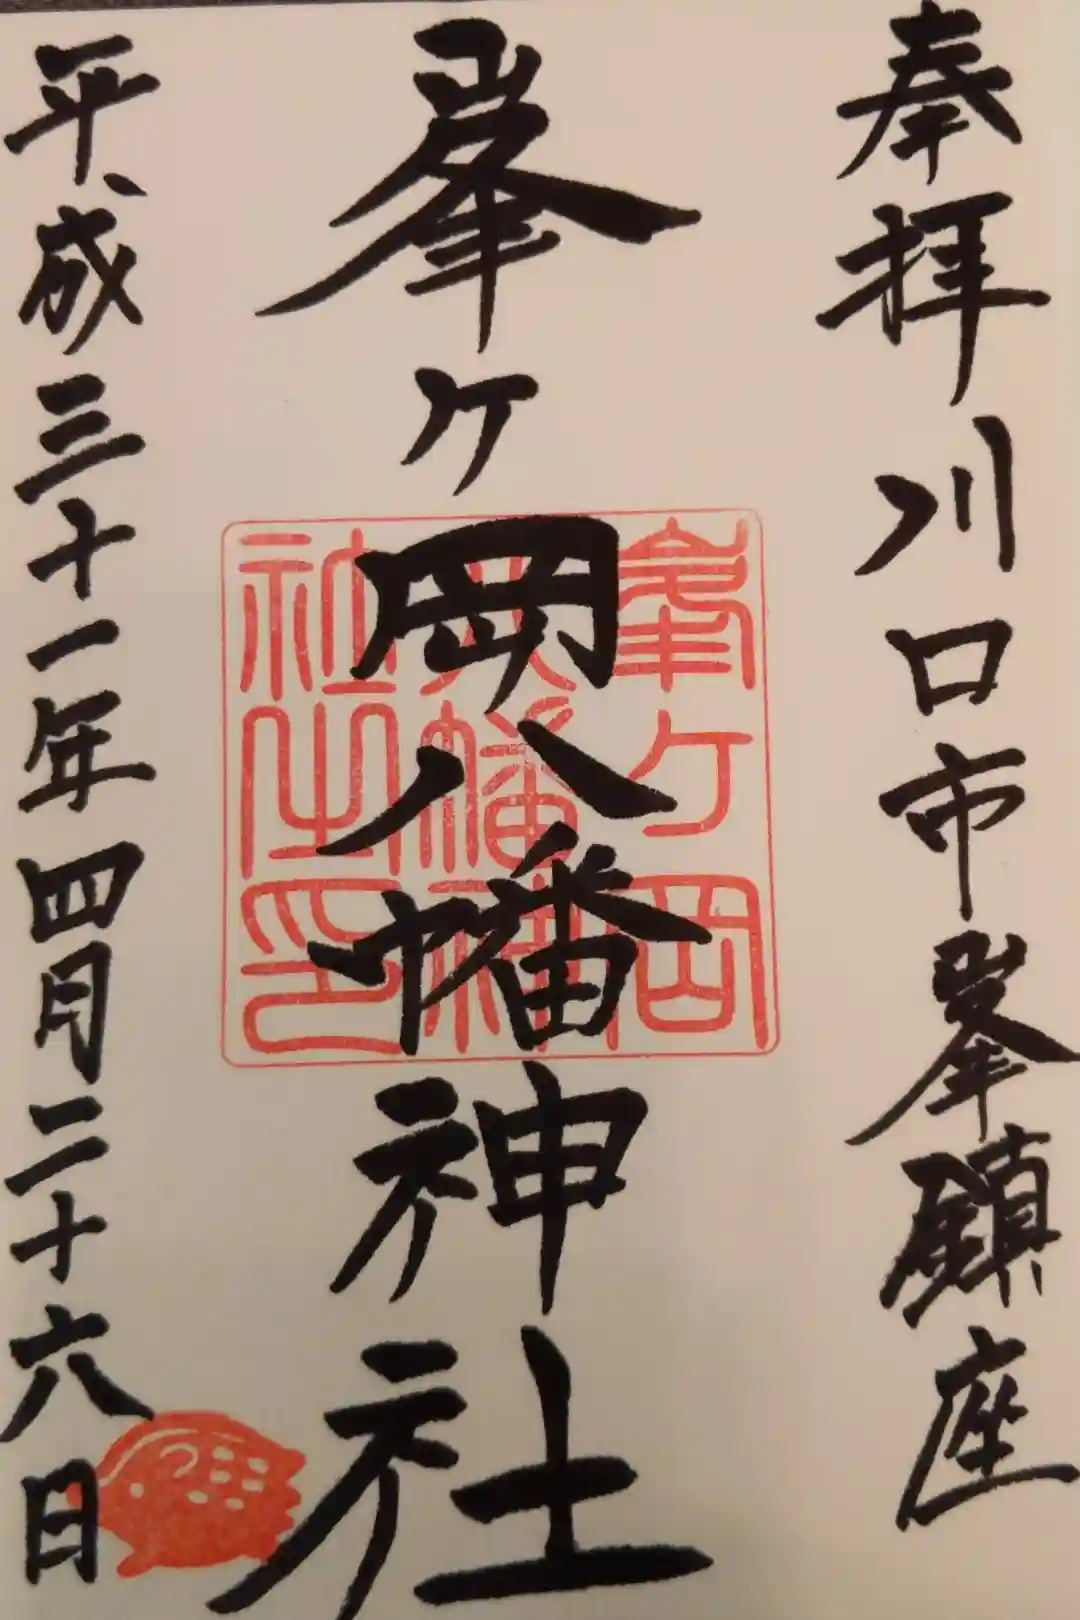 奉拝 川口市峯鎮座
峯ヶ岡八幡神社
峯ヶ岡
八幡神
社之印
平成三十一年四月二十六日